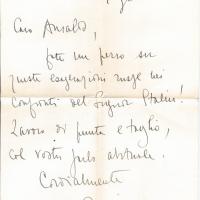 Caro Ansaldo,
fate un pezzo su
queste esagerazioni russe nei
confronti del Signor Stalin!
Lavoro di punta e taglio,
col vostro garbo abituale.
Cordialmente